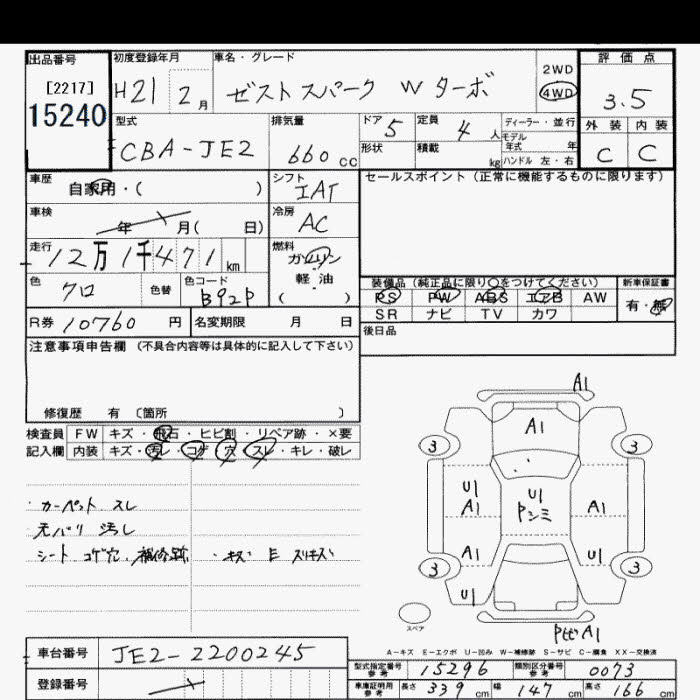 出品番号 初度登録年月 車名・グレード 2WD 評価点
[2217] H21 2月 ゼストスパーク W ターボ 4WD 3.5
15240
型式 排気量 ドア 5 定員 4人 ディーラー・並行 外装 内装
CBA-JE2 660 cc 形状 積載 kg モデル年式 年 C C
ハンドル 左・右
車歴 自家用・( ) シフト IAT セールスポイント (正常に機能するものに限ります)
車検 年 月( 日) 冷房 AC
走行 12万1千471 km 燃料 ガソリン
軽油
( )
色 クロ 色替 色コード B92P 装備品 (純正品に限り○をつけてください) 新車保証書
PS PW ABS エアB AW 有・無
R券 10760 円 名変期限 月 日 SR ナビ TV カワ
注意事項申告欄 (不具合内容等は具体的に記入して下さい) 後日品
修復歴 有 〔箇所 〕
検査員 FW キズ・飛石・ヒビ割・リペア跡・×要
記入欄 内装 キズ・汚レ・コゲ・穴・スレ・キレ・破レ
・カーペット スレ
天バリ 汚し
シート コゲ穴、補修跡 ・キズ E スリキズ
A1
A1
3 3
U1 U1 A1
A1 Pシミ
A1 U1
3 3
U1
スペア
A1
A-キズ E-エクボ U-凹み W-補修跡 S-サビ C-腐食 XX-交換済
車台番号 JE2-2200245
型式指定番号 参考 15296 類別区分番号 参考 0073
登録番号
車庫証明用 参考 長さ 339 cm 幅 147 cm 高さ 166 cm